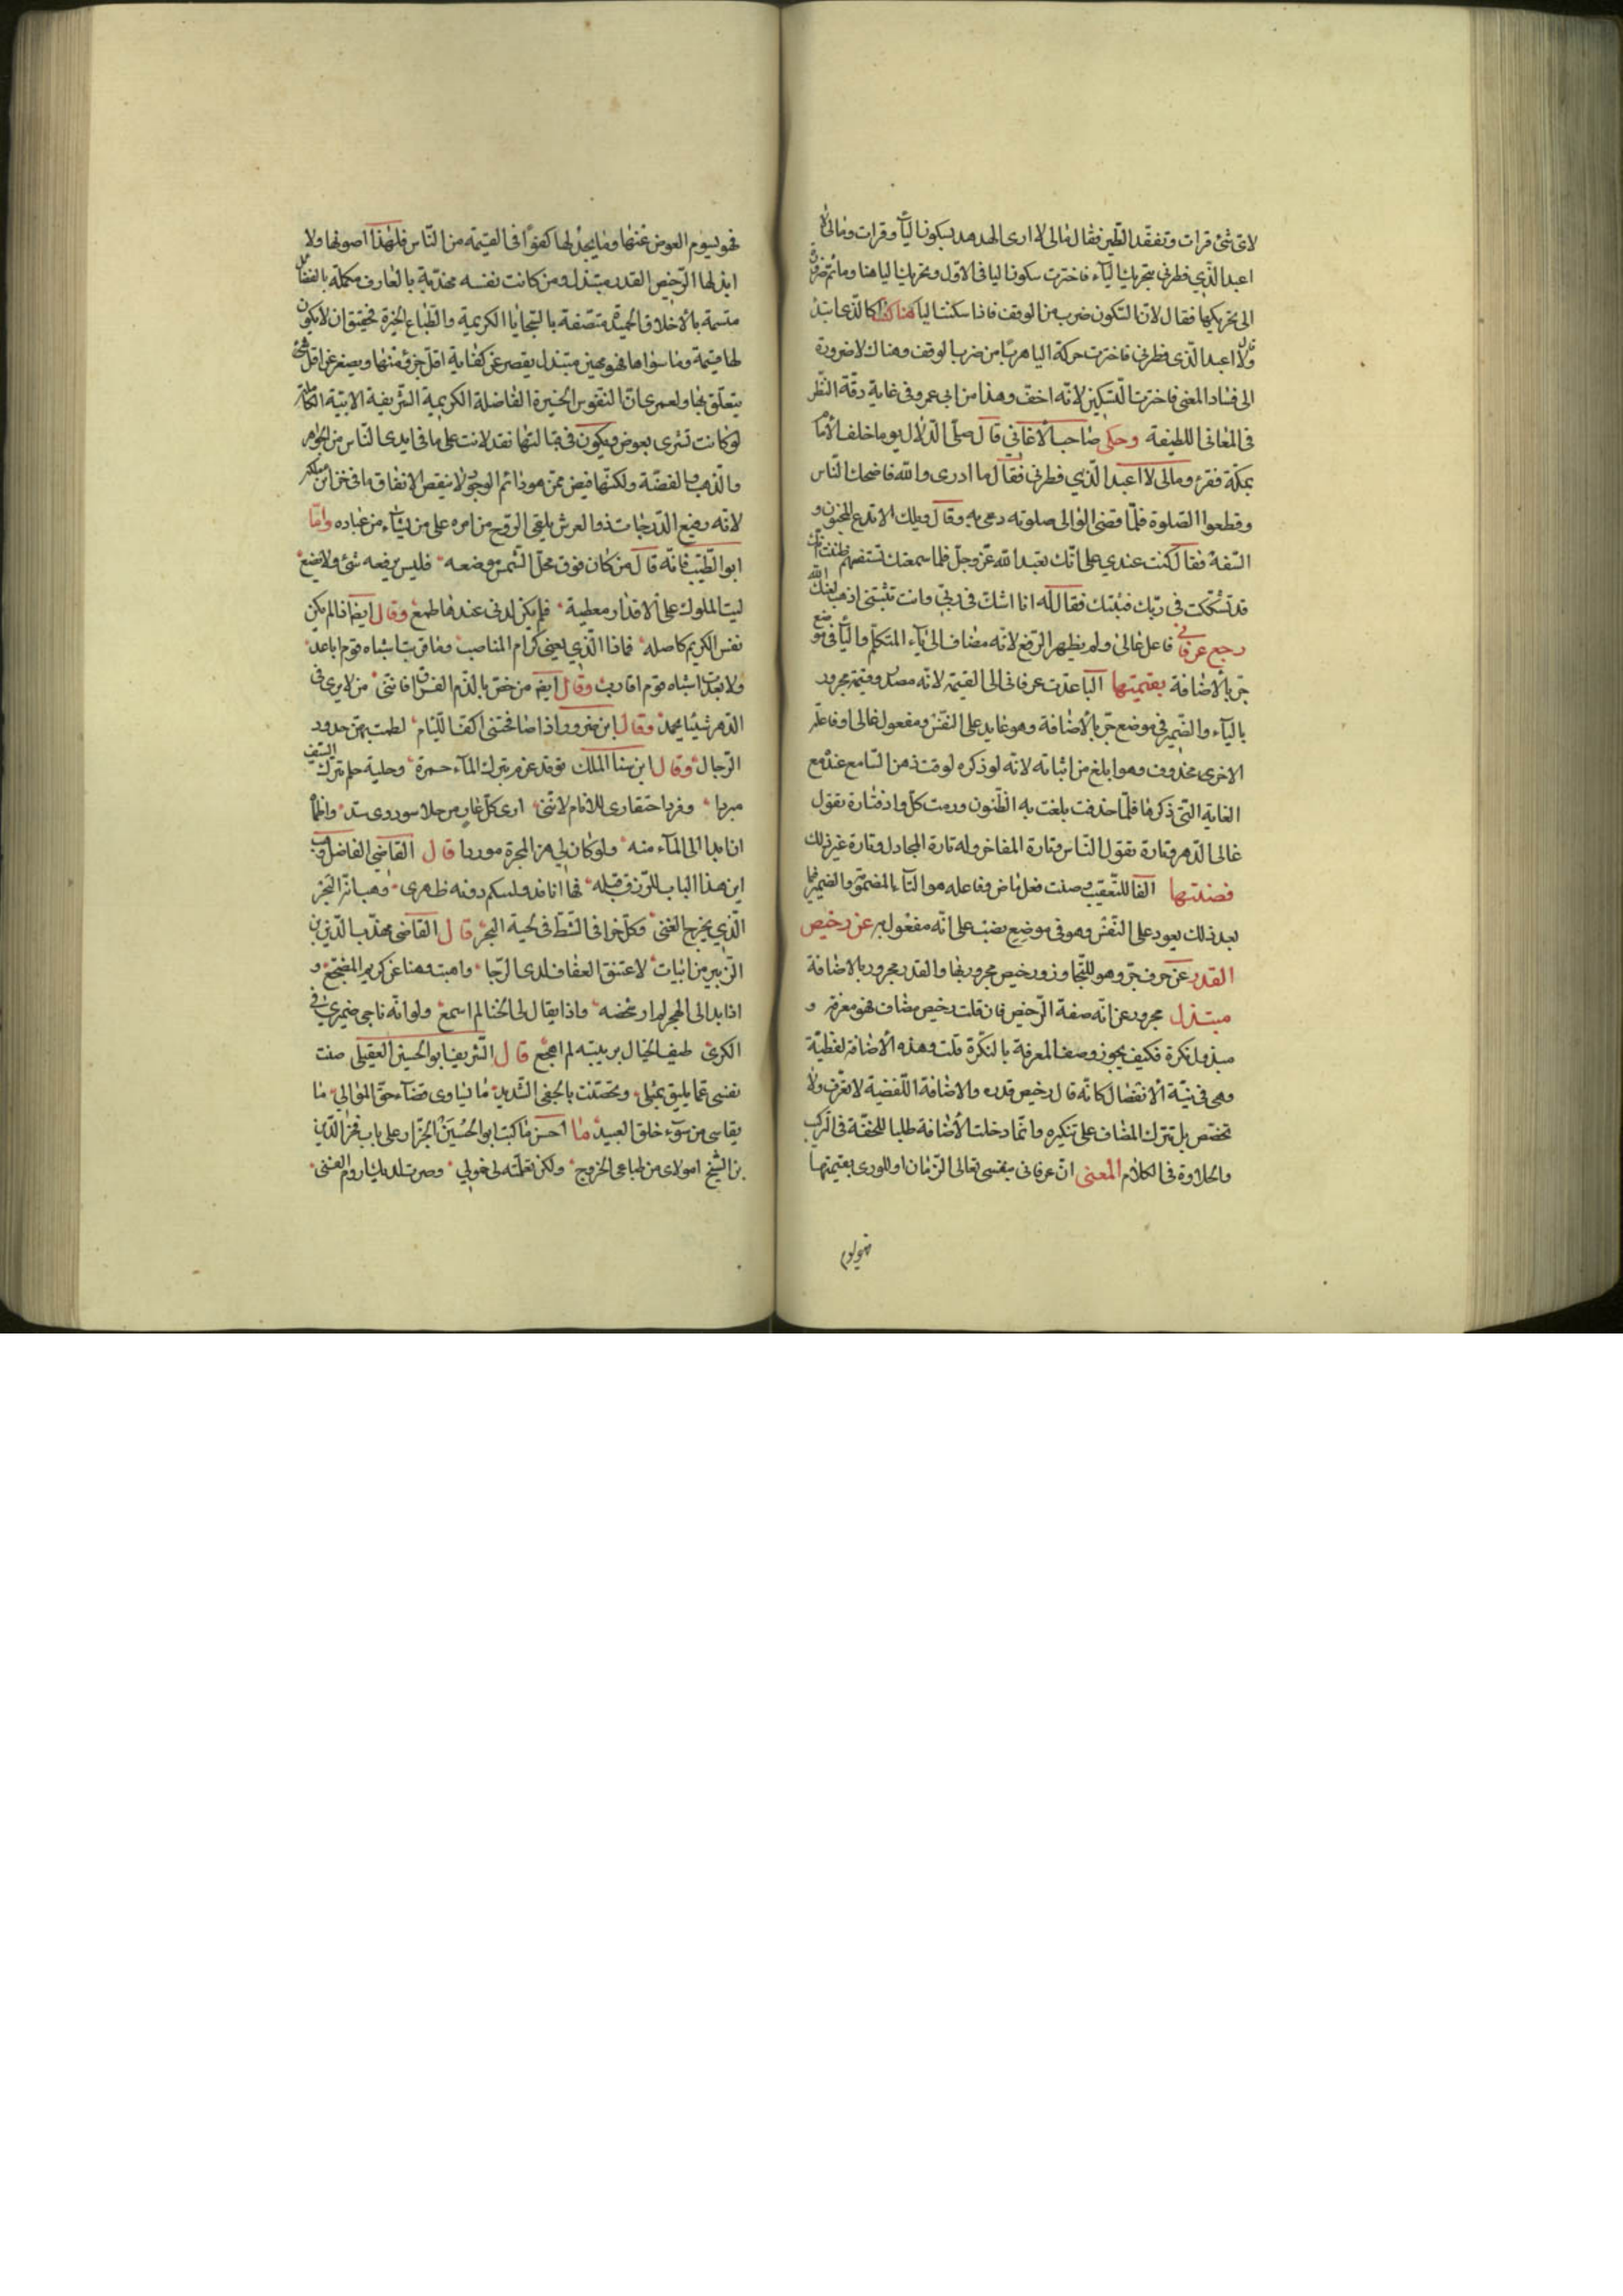 لاى شئ قرات وتفقد الطير فقال مالى لا ارى الهدهد بسكون الياء وقرات ومالى لا
اعبد الذي فطرني بتحريك الياء فاخترت سكون اليا فى الاول وتحريك اليا هنا وما ثم
الى تحريكها فقال لان السكون ضرب من الوقف فاذا سكنت اليا هنا كنت كالذى ابتدا
وقال لا اعبد الذى فطرنى فاخترت حركة اليا هربا من ضرب الوقف وهناك لا ضرورة
الى فساد المعنى فاخترت التسكين لانه اخف وهذا من ابى عمرو فى غاية دقة النظر
فى المعانى اللطيفة وحكى صاحب الاغانى قال صلى الدلال يوما خلف الامام
بمكة فقرء ومالى لا اعبد الذي فطرنى فقال ما ادرى والله فاضحك الناس
وقطعوا الصلوة فلما قضى الوالى صلوته دعى به وقال ويلك الا تدع المجون و
السفه فقال كنت عندي على انك تعبد الله عز وجل فلما سمعتك تستفهم ظننت انك
قد تشككت فى ربك فثبتك فقال له انا اشك فى ربى وانت تثبتنى اذهب لعنك الله
رجع عرفانى فاعل غالى ولم يظهر الرفع لانه مضاف الى ياء المتكلم واليا فى موضع
جر بالاضافة بقيمتها البا عدت عرفانى الى القيمة لانه مصدر وقيمة مجرور
بالباء والضمير فى موضع جر بالاضافة وهو عايد على النفس ومفعول غالى او فاعله
الاخرى محذوف وهو ابلغ من اثباته لانه لو ذكره لوقف ذهن السامع عند مع
الغاية التى ذكرها فلما حذفت بلغت به الظنون ورمت كل واد فتارة تقول
غالى الدهر وتارة تقول الناس وتارة المفاخر وله تارة المجادل وتارة غير ذلك
فصنتها الفا للتعقيب وصنت فعل ماض وفاعله هو التاء المضمومة والضمير فيما
بعد ذلك يعود على النفس وهو فى موضع نصب على انه مفعول به عن رخيص
القدر عن حرف جر وهو للتجاوز ورخيص مجرور بها والقدر مجرور بالاضافة
مبتذل مجرور عن انه صفة الرخيص فان قلت رخيص مضاف فهو معرفة و
مبتذل نكرة فكيف يجوز وصف المعرفة بالنكرة قلت وهذه الاضافة لفظية
وهى فى نية الانفصال كانه قال رخيص قدره والاضافة اللفظية لا تعرف ولا
تخصص بل تترك المضاف على تنكيره وانما دخلت الاضافة طلبا للخفة فى التركيب
والحلاوة فى الكلام المعنى ان عرفانى بنفسى تعالى الزمان او للورى بقيمتها
فهو يسوم
فهو يسوم العوض عنها وما يجد لها كفوًا فى القيمة من الناس فلهذا اصونها ولا
ابذلها الرخيص القدر مبتذل ومن كانت نفسه مهذبة بالمعارف مكملة بالفضائل
متسمة بالاخلاق الحميدة متصفة بالسجايا الكريمة والطباع الخيرة فحقيق ان لا يكون
لها قيمة وما سواها فهو مهين مبتذل يقصر عن كفاية اقل جزء منها ويصغر عن اقل شئ
يتعلق بها ولعمرى ان النفوس الخيرة الفاضلة الكريمة الشريفة الابية الكاملة
لو كانت تشرى بعوض ويكون فى قبالتها نقد لانت على ما فى ايدى الناس من الجواهر
والذهب والفضة ولكنها فيض ممن هو دائم الوجود لا ينقص الانفاق ما فى خزائن ملكه
لانه رفيع الدرجات ذو العرش يلقى الروح من امره على من يشاء من عباده واما
ابو الطيب فانه قال من كان فوق محل الشمس موضعه فليس يرفعه شئ ولا يضع
ليت الملوك على الاقدار معطية فلم يكن لدنى عندها طمع وقال ايضا اذا لم يكن
نفس الكريم كاصله فماذا الذي يغنى كرام المناصب وما قربت اشباه قوم اباعد
ولا بعدت اشباه قوم اقارب وقال ايضا من خص بالذم الفراق فاننى من لا يرى فى
الدهر شيئا يحمد وقال ابن واذا صافحتنى اكف اللئام لطمت بهن خدود
الرجال وقال ابن سنا الملك توقد عزم يترك الماء جمرة وحلية حلم تترك السيف
مبردا وفرط احتقارى للانام لاننى ارى كل عار من حلا سوددى سدى واظما
ان ابدا الى الماء منه ولو كان لى نهر المجرة موردا قال القاضى الفاضل
اين هذا الباب للرزق قبله فها انا قد وليتكم دونه ظهرى وهبانه البحر
الذي يخرج الغنى وكل خرا فى الشط فى لحية البحر قال القاضى مهذب الدين بن
الزبير من ابيات لا عتنق العفاف لدى الرجا واهب وهنا عن كريم المضجع و
اذا بدا لى الهجر لم ار شخصه واذا يقال لى الخنا لم اسمع ولو انه ناجى ضميرى فى
الكرى طيف الخيال بريبة لم اهجع قال الشريف ابو الحسين العقيلى صنت
نفسى عما يليق بمثلى وتحصنت بالجفى الشديد ما يساوى قضاء حق الموالى ما
يقاسى من سوء خلق العبيد ما احسن ما كتب ابو الحسين الجزار على باب فخر الدين
بن الشيخ امولاى من طباعى الخروج ولكن تعلمته لى خمولى وصرت لديك اروم الغنى